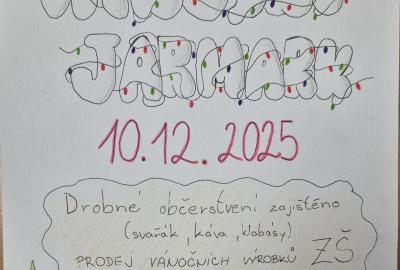 JARMARK
10.12.2025
Drobné občerstvení zajištěno
(svařák, káva, klobásy)
PRODEJ VÁNOČNÍCH VÝROBKŮ ZŠ